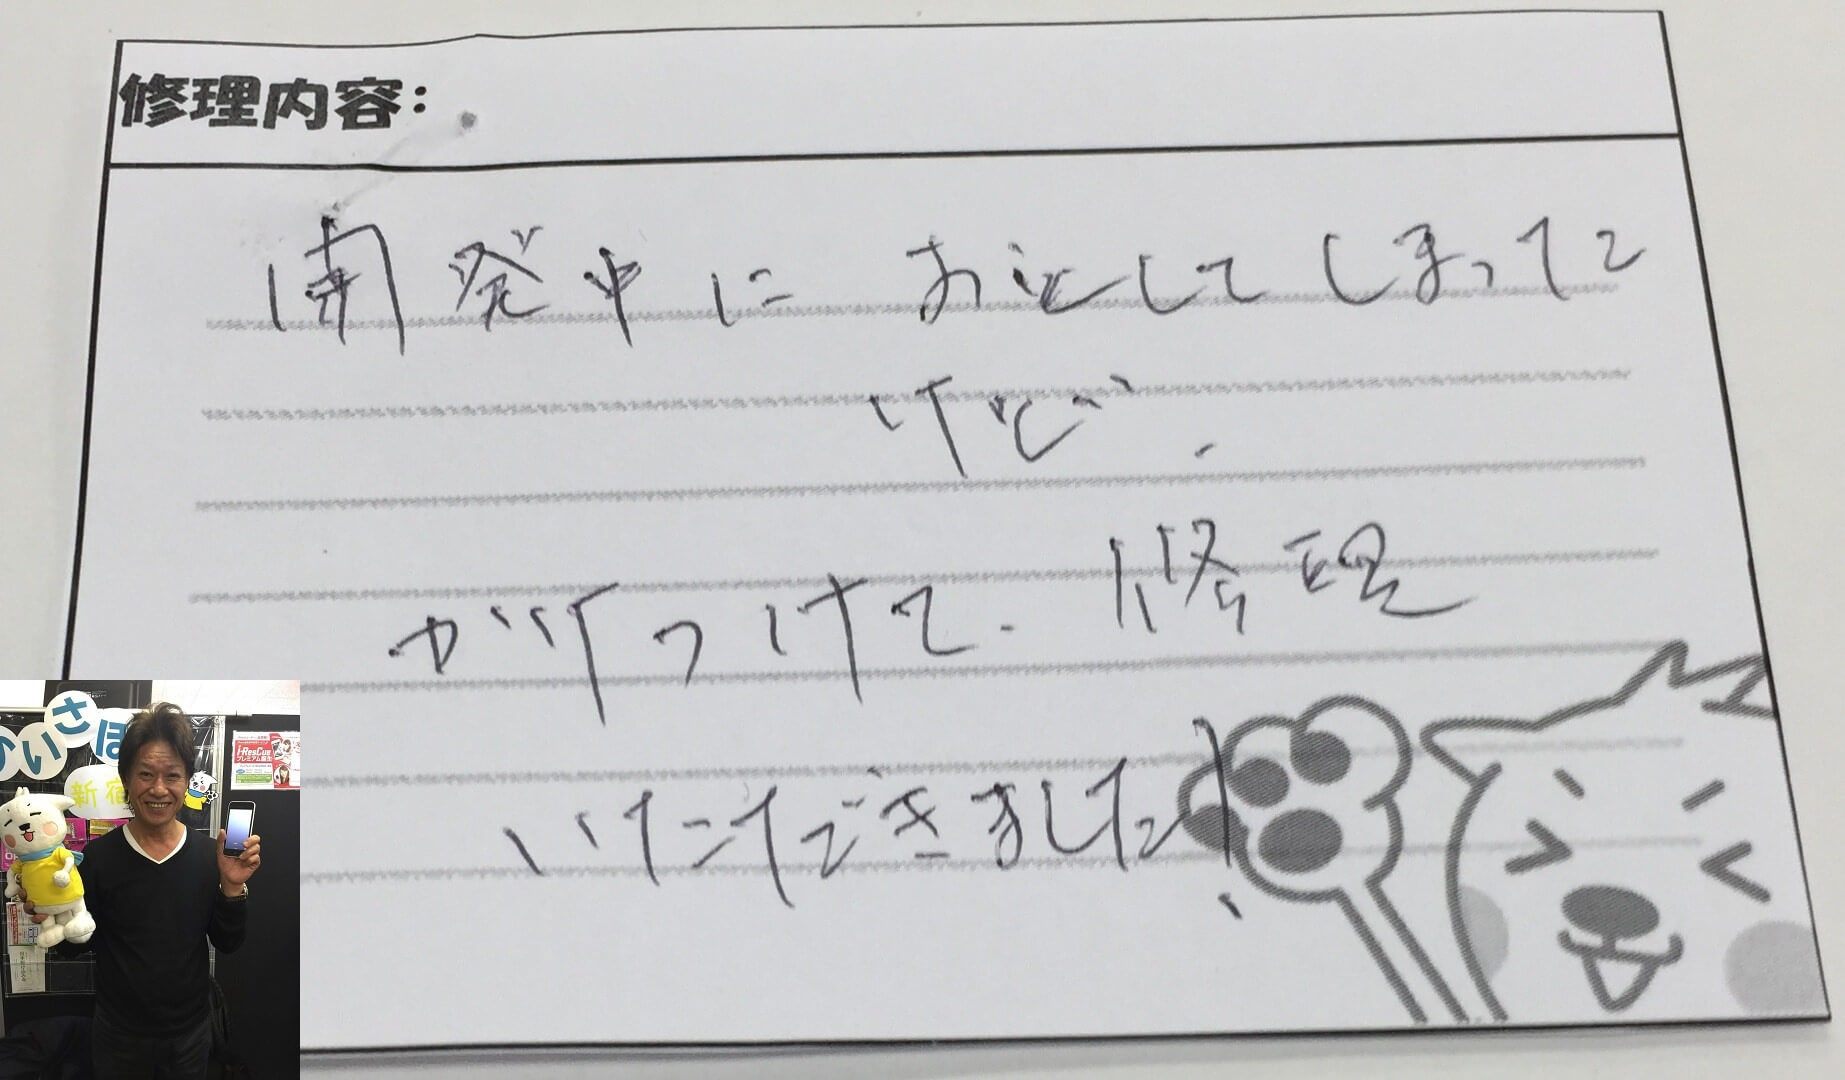 修理内容:
開発中に おとしてしまった
けど、
かけつけて、修理
いただきました!
さ
いさぽ
新宿
i-ResCue
プレミアム誕生